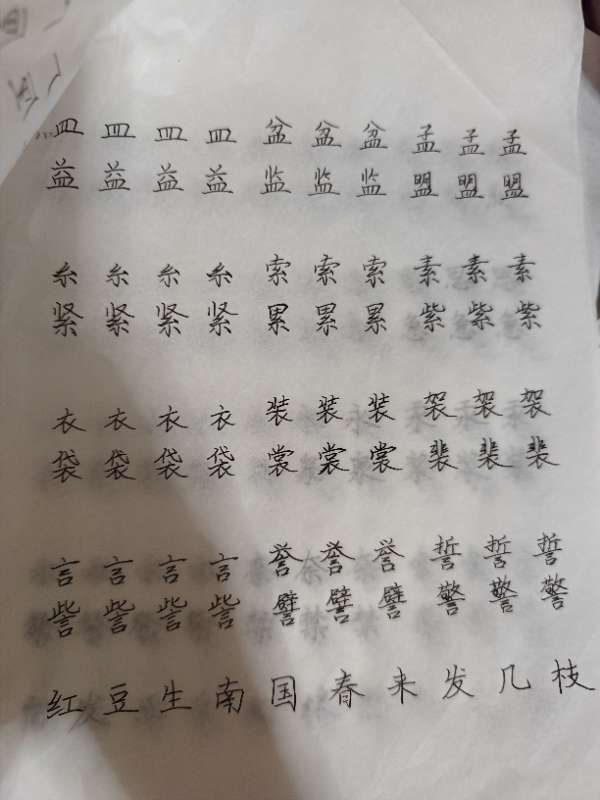 皿 皿 皿 皿 盆 盆 盆 孟 孟 孟
益 益 益 益 监 监 监 盟 盟 盟
糸 糸 糸 糸 索 索 索 素 素 素
紧 紧 紧 紧 累 累 累 紫 紫 紫
衣 衣 衣 衣 装 装 装 袈 袈 袈
袋 袋 袋 袋 裳 裳 裳 裴 裴 裴
言 言 言 言 誉 誉 誉 誓 誓 誓
訾 訾 訾 訾 譬 譬 譬 警 警 警
红 豆 生 南 国 春 来 发 几 枝